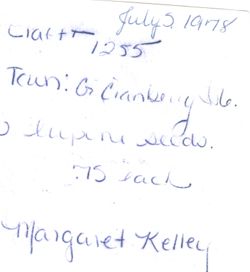 July 5, 1978
Craft
1255
Town: Gt Cranberry Isle.
lupine seeds.
.75 each
Margaret Kelley